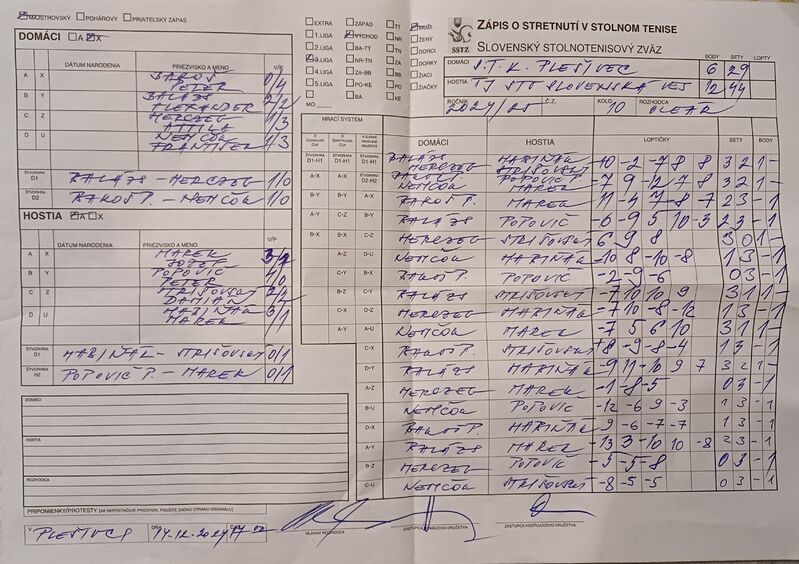 MAJSTROVSKÝ POHÁROVÝ PRIATEĽSKÝ ZÁPAS
DOMÁCI A X
DÁTUM NARODENIA PRIEZVISKO A MENO V/P
A X BAKOŠ PETER 0/4
B Y BALÁZS ALEXANDER 2/2
C Z HERCZEG ATTILA 1/3
D U NEMČOK FRANTIŠEK 1/3
ŠTVORHRA D1 BALÁZS - HERCZEG 1/0
D2 BAKOŠ P. - NEMČOK 1/0
HOSTIA A X
DÁTUM NARODENIA PRIEZVISKO A MENO V/P
A X MAREK JOZEF
B Y POPOVIČ PETER 4/0
C Z STRIŠOVSKÝ DAMIAN
D U MARIŇÁK MAREK
ŠTVORHRA D1 MARIŇÁK - STRIŠOVSKÝ 0/1
H2 POPOVIČ P. - MAREK 0/1
DOMÁCI
HOSTIA
ROZHODCA
PRIPOMIENKY/PROTESTY (AK NEPOSTAČUJE PRIESTOR, POUŽITE ZADNÚ STRANU ORIGINÁLU)
V PLEŠIVCI DŇA 14.12.2024
HLAVNÝ ROZHODCA
ZÁSTUPCA DOMÁCEHO DRUŽSTVA
ZÁSTUPCA HOSŤUJÚCEHO DRUŽSTVA
EXTRA ZÁPAD TT MUŽI
1.LIGA VÝCHOD NR ŽENY
2.LIGA BA-TT TN DORCI
3.LIGA NR-TN ZA DORKY
4.LIGA ZA-BB BB ŽIACI
5.LIGA PO-KE PO ŽIAČKY
BA KE
MO
SSTZ
ZÁPIS O STRETNUTÍ V STOLNOM TENISE
SLOVENSKÝ STOLNOTENISOVÝ ZVÄZ
BODY SETY LOPTY
DOMÁCI S.T.K. PLEŠIVEC 6 29
HOSTIA TJ STO SLOVENSKÁ VES 12 44
ROČNÍK 2024/25 Č.Z. KOLO 10 ROZHODCA
HRACÍ SYSTÉM
DOMÁCI HOSTIA LOPTIČKY SETY BODY
BALÁZS HERCZEG MARIŇÁK STRIŠOVSKÝ -10 -2 -7 8 8 3 2 1 -
BAKOŠ NEMČOK POPOVIČ P. MAREK -7 9 -12 7 8 3 2 1 -
BAKOŠ P. MAREK 11 -4 7 -8 -7 2 3 - 1
BALÁZS POPOVIČ -6 -9 5 10 -3 2 3 - 1
HERCZEG STRIŠOVSKÝ 6 9 8 3 0 1 -
NEMČOK MARIŇÁK -10 8 -10 -8 1 3 - 1
BAKOŠ P. POPOVIČ -2 -9 -6 0 3 - 1
BALÁZS STRIŠOVSKÝ -7 10 10 9 3 1 1 -
HERCZEG MARIŇÁK -7 10 -8 -12 1 3 - 1
NEMČOK MAREK -7 5 6 10 3 1 1 -
BAKOŠ P. STRIŠOVSKÝ -8 -9 8 -4 1 3 - 1
BALÁZS MARIŇÁK -9 11 -10 9 7 3 2 1 -
HERCZEG MAREK -1 -8 -5 0 3 - 1
NEMČOK POPOVIČ -12 -6 9 -3 1 3 - 1
BAKOŠ P. MARIŇÁK 9 -6 -7 -7 1 3 - 1
BALÁZS MAREK -13 3 -10 10 -8 2 3 - 1
HERCZEG POPOVIČ -5 -5 -8 0 3 - 1
NEMČOK STRIŠOVSKÝ -8 -5 -5 0 3 - 1